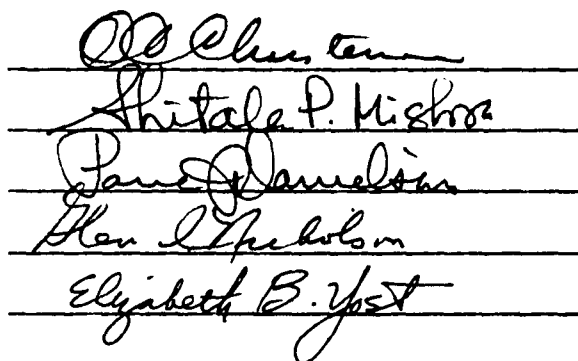 Christensen
Shitala P. Mishra
Danielson
Glen I Nicholson
Elizabeth B. Yost